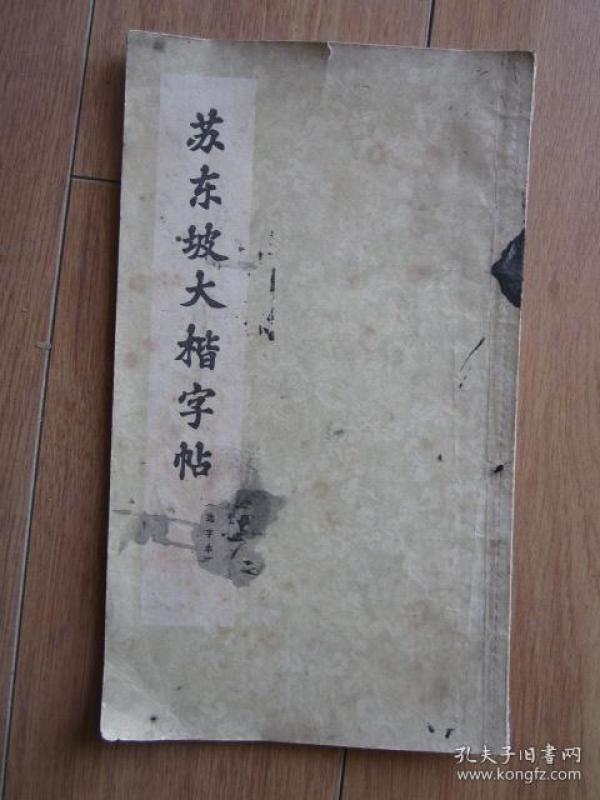 苏东坡大楷字帖
(选字本)
孔夫子旧書网
www.kongfz.com